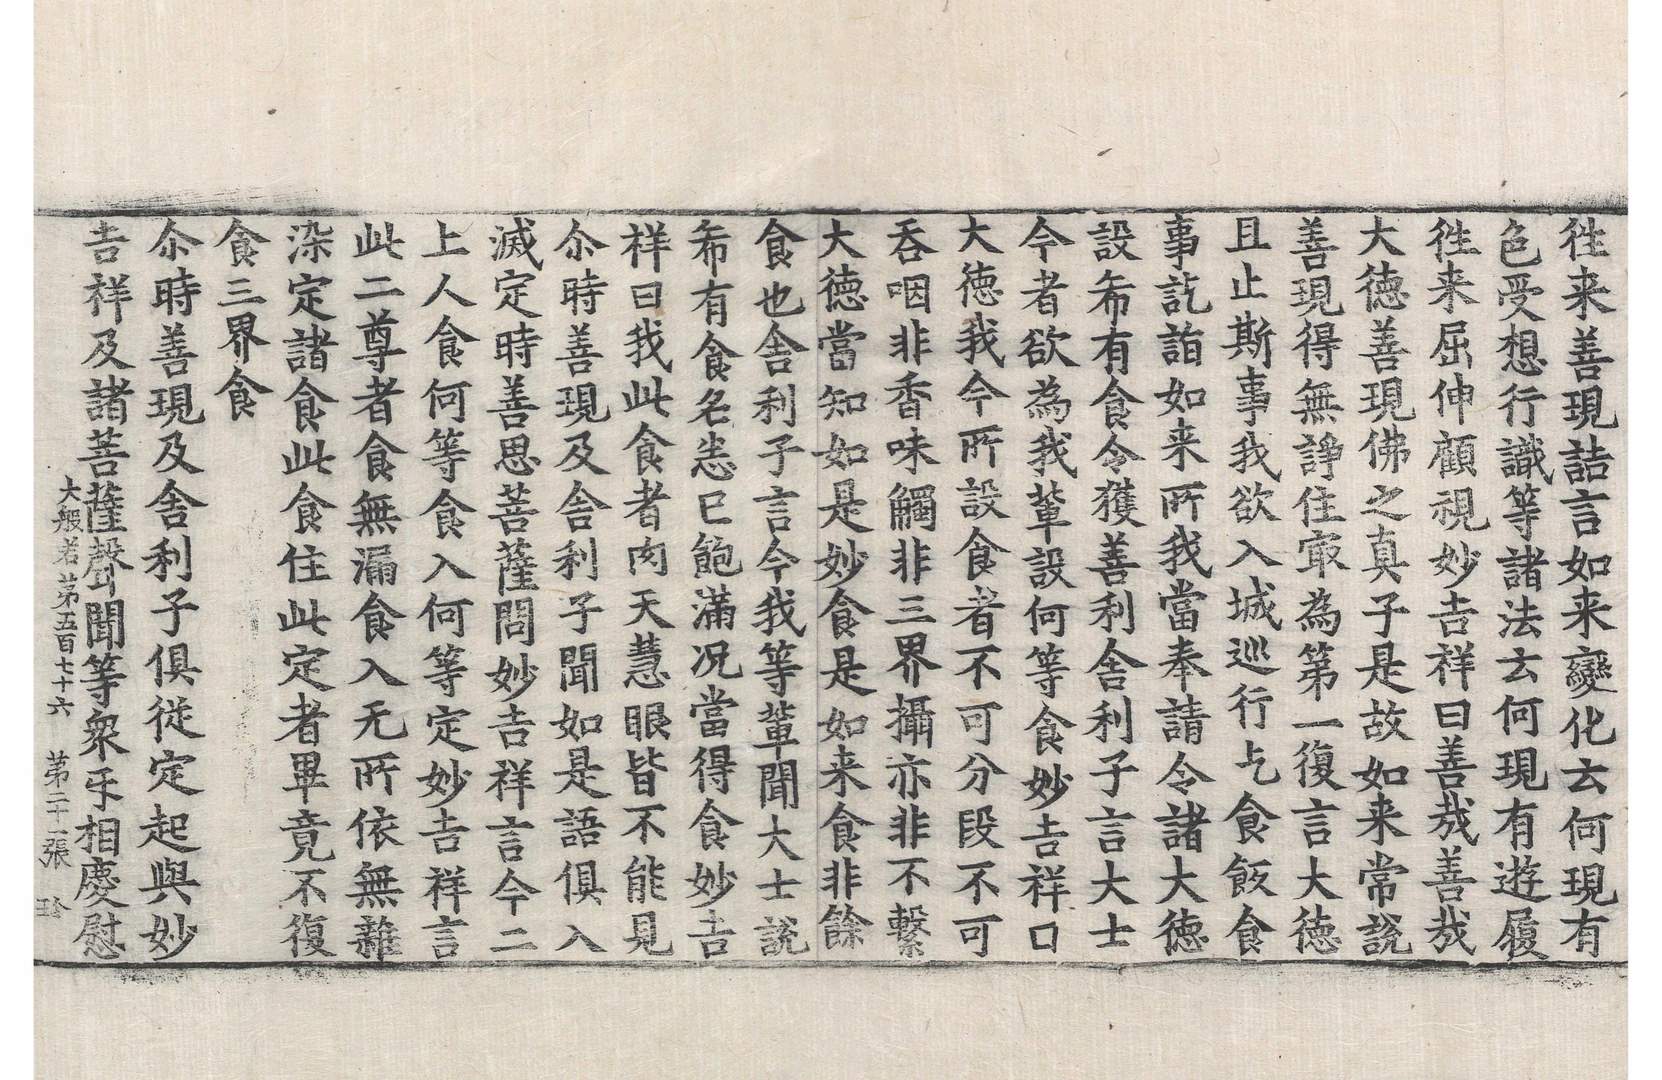 徃来善現詰言如来變化云何現有
色受想行識等諸法云何現有遊履
徃来屈伸顧視妙吉祥曰善㢤善㢤
大德善現佛之真子是故如来常說
善現得無諍住㝡為第一復言大德
且止斯事我欲入城巡行乞食飯食
事訖詣如来所我當奉請令諸大德
設希有食令獲善利舍利子言大士
今者欲為我軰設何等食妙吉祥口
大德我今所設食者不可分段不可
吞咽非香味觸非三界攝亦非不繫
大德當知如是妙食是如来食非餘
食也舍利子言今我等軰聞大士說
希有食名悉已飽滿况當得食妙吉
祥曰我此食者肉天慧眼皆不能見
尒時善現及舍利子聞如是語俱入
滅定時善思菩薩問妙吉祥言今二
上人食何等食入何等定妙吉祥言
此二尊者食無漏食入无所依無雜
染定諸食此食住此定者畢竟不復
食三界食
尒時善現及舍利子俱従定起與妙
吉祥及諸菩薩聲聞等衆𠄔相慶慰
大般若第五百七十六　第二十一張　玲